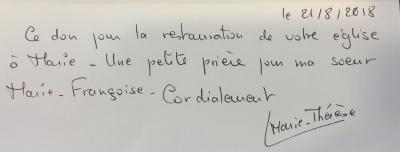 le 21/8/2018
Ce don pour la restauration de votre église
à Marie - Une petite prière pour ma soeur
Marie-Françoise - Cordialement
Marie-Thérèse